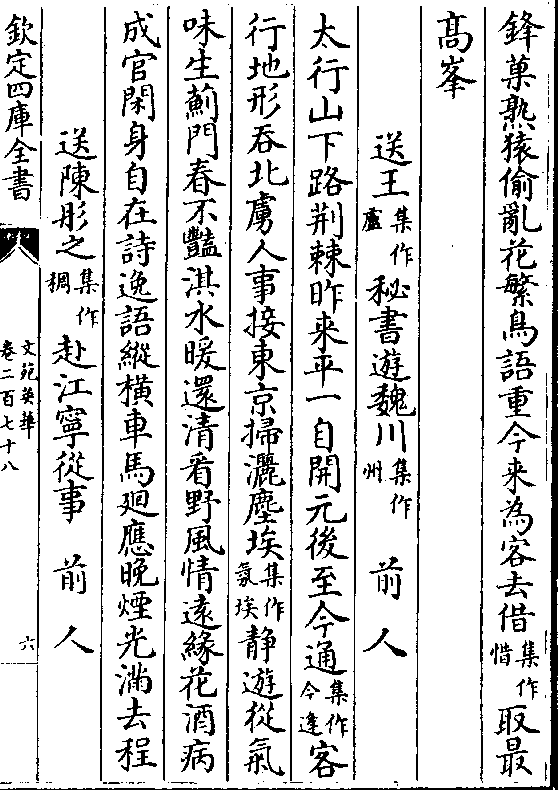 鋒菓熟猿偷亂花繁鳥語重今来為客去借集作惜取最
高峯
送王集作盧秘書遊魏川集作州 前人
太行山下路荆棘昨来平一自開元後至今通集作今逢客
行地形吞北虜人事接東京掃灑塵埃集作氛埃静遊從氣
味生薊門春不豔淇水暖還清看野風情遠緣花酒病
成官閑身自在詩逸語縱横車馬廻應晚煙光滿去程
送陳彤之集作稠赴江寧從事 前人
欽定四庫全書
文苑英華
卷二百七十八
六